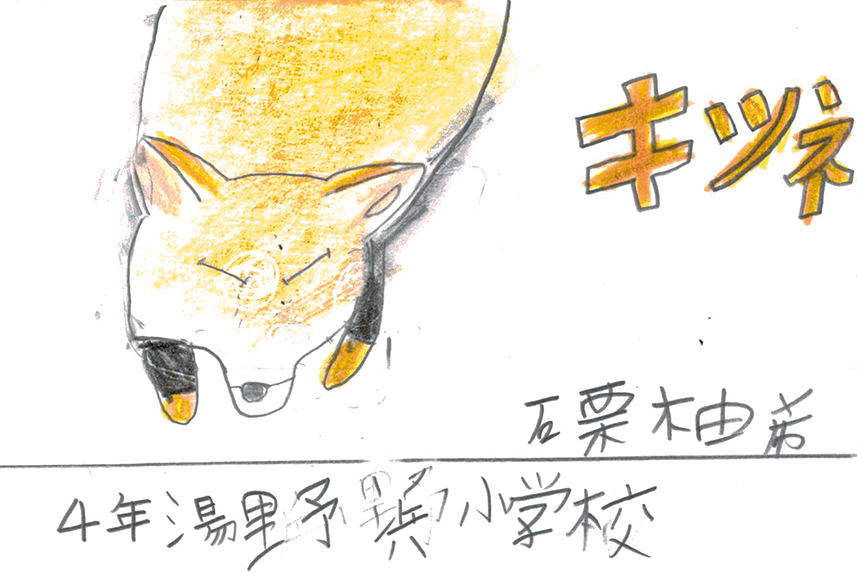 キツネ
石栗柚希
4年湯野浜小学校